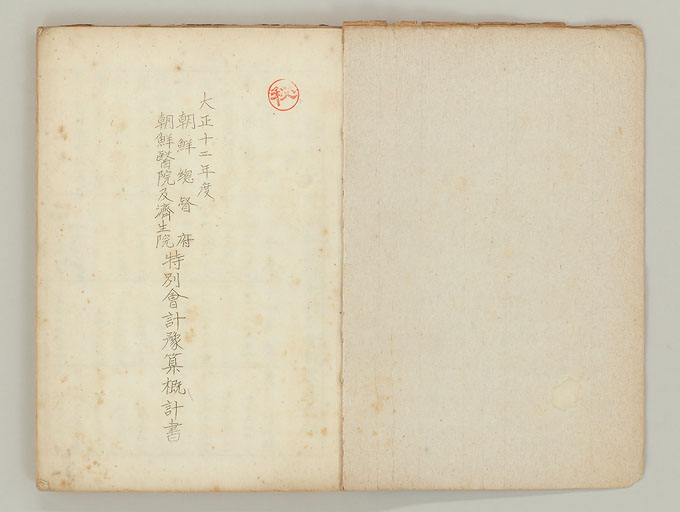 秘
大正十二年度
朝鮮總督府
朝鮮醫院及濟生院
特別會計豫算概計書